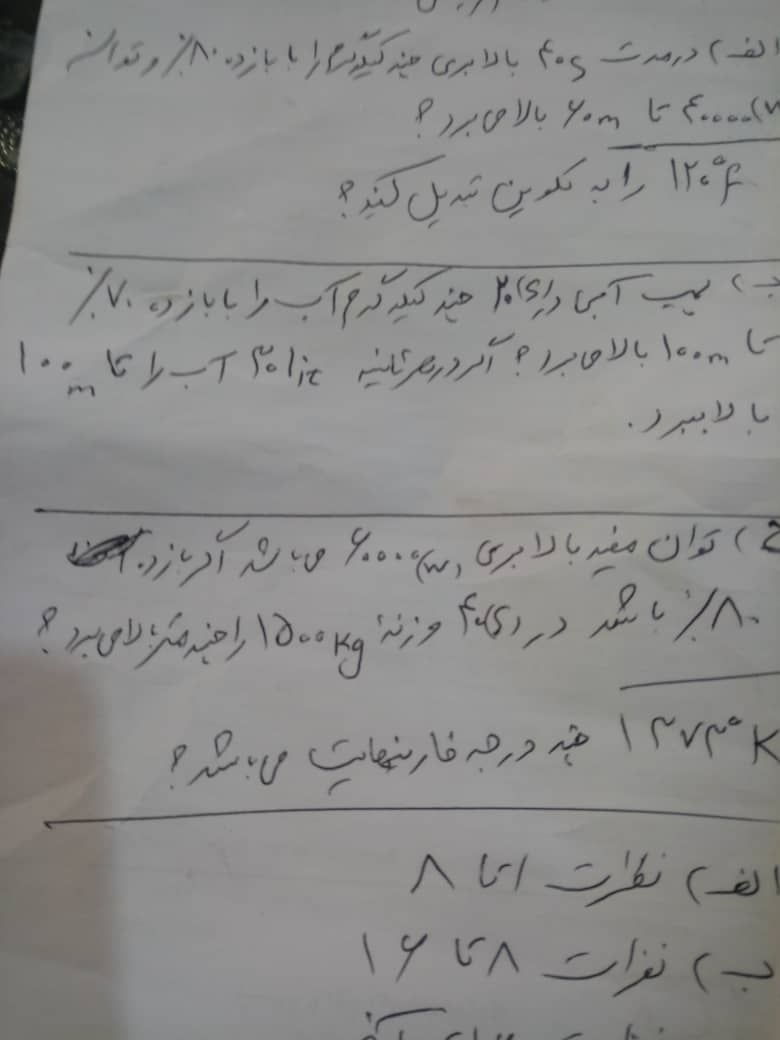 الف) در مدت ۴۰s بالابری چند کیلوگرم را با بازده ۸۰٪ و توان
۴۰۰۰۰(w تا ۶۰m بالا می برد؟
۱۲۰°F را به کلوین تبدیل کنید؟
ب) پمپ آبی در ۲۰(s) چند کیلوگرم آب را با بازده ۷۰٪
تا ۱۰۰m بالا می برد؟ اگر در هر ثانیه ۳۰lit آب را تا ۱۰۰m
بالا ببرد.
ج) توان مفید بالابری ۶۰۰۰۰(w) می باشد اگر بازده
۸۰٪ باشد در ۴۰(s) وزنهٔ ۱۵۰۰kg را چند متر بالا می برد؟
۱۳۷۳°K چند درجه فارنهایت می باشد؟
الف) نفرات ۱ تا ۸
ب) نفرات ۸ تا ۱۶